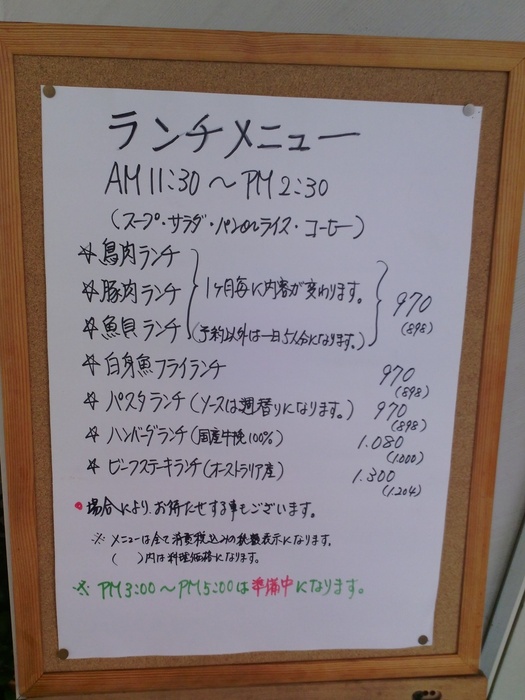 ランチメニュー
AM 11:30 ～ PM 2:30
(スープ・サラダ・パンorライス・コーヒー)
☆ 鳥肉ランチ
☆ 豚肉ランチ 1ヶ月毎に内容が変わります。 970
☆ 魚貝ランチ (予約以外は一日5人分になります。) (898)
☆ 白身魚フライランチ 970
(898)
☆ パスタランチ (ソースは週替りになります。) 970
(898)
☆ ハンバーグランチ (国産牛挽100%) 1.080
(1.000)
☆ ビーフステーキランチ (オーストラリア産) 1.300
(1.204)
● 場合により、お待たせする事もございます。
※ メニューは全て消費税込みの総額表示になります。
( )内は料理価格になります。
※ PM3:00 ～ PM5:00は準備中になります。